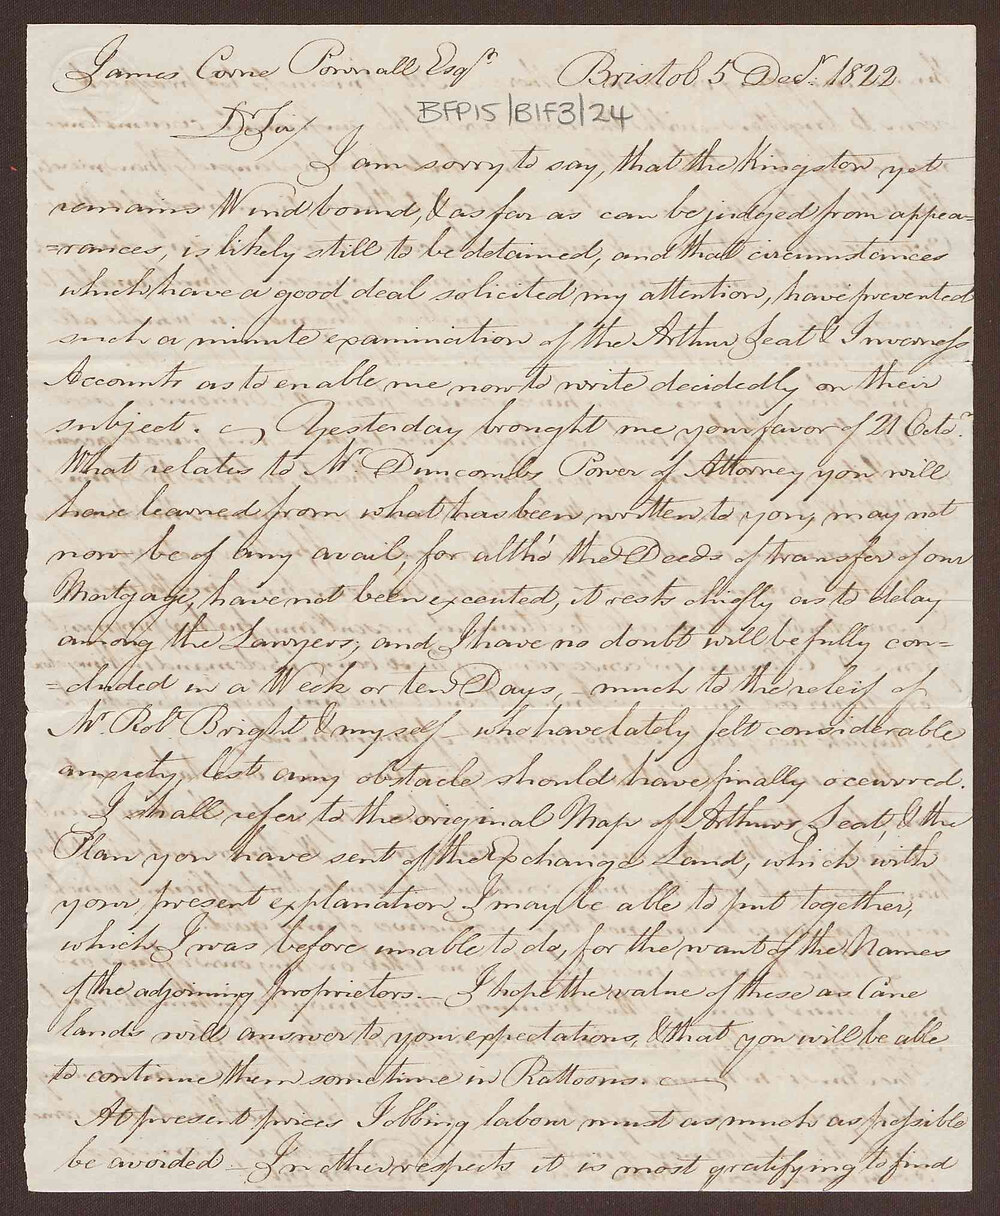 James Corne Pownall Esqr Bristol 5 Decr. 1822
BFP15/B1F3/24
Dr Sir/
I am sorry to say, that the Kingston yet
remains Wind bound, & as far as can be judged from appea=
=rances, is likely still to be detained, and that circumstances
which have a good deal solicited my attention, have prevented
such a minute examination of the Arthur Seat & Inverness
Accounts as to enable me now to write decidedly on their
subject. — Yesterday brought me your favor of 21 Octr.
What relates to Mr Duncombs Power of Attorney you will
have learned from what has been written to you, may not
now be of any avail, for altho' the Deeds of transfer of our
Mortgage, have not been executed, it rests chiefly as to delay
among the Lawyers, and I have no doubt will be fully con=
=cluded in a Week or ten Days, – much to the releif of
Mr Robt Bright & myself – who have lately felt considerable
anxiety lest any obstacle should have finally occurred.
I shall refer to the original Map of Arthurs Seat, & the
Plan you have sent of the Exchange Land, which with
your present explanation I may be able to put together,
which I was before unable to do, for the want of the Names
of the adjoining proprietors. – I hope the value of these as Cane
lands will answer to your expectations, & that you will be able
to continue them sometime in Rattoons. —
At present prices Jobbing labour must as much as possible
be avoided – In other respects it is most gratifying to find